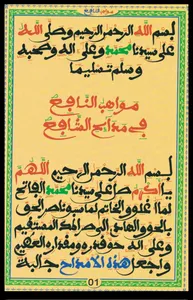 بسم الله الرحمن الرحيم وصلى الله
على سيدنا محمد وعلى اله وصحبه
وسلم تسليما
مواهب النافع
في مدائح الشافع
بسم الله الرحمن الرحيم اللهم
يا كريم صل على سيدنا محمد الفاتح
لما أغلق والخاتم لما سبق ناصر الحق
بالحق والهادي الى صراطك المستقيم
وعلى اله حق قدره ومقداره العظيم
واجعل هذه الأمداح جالبة
01